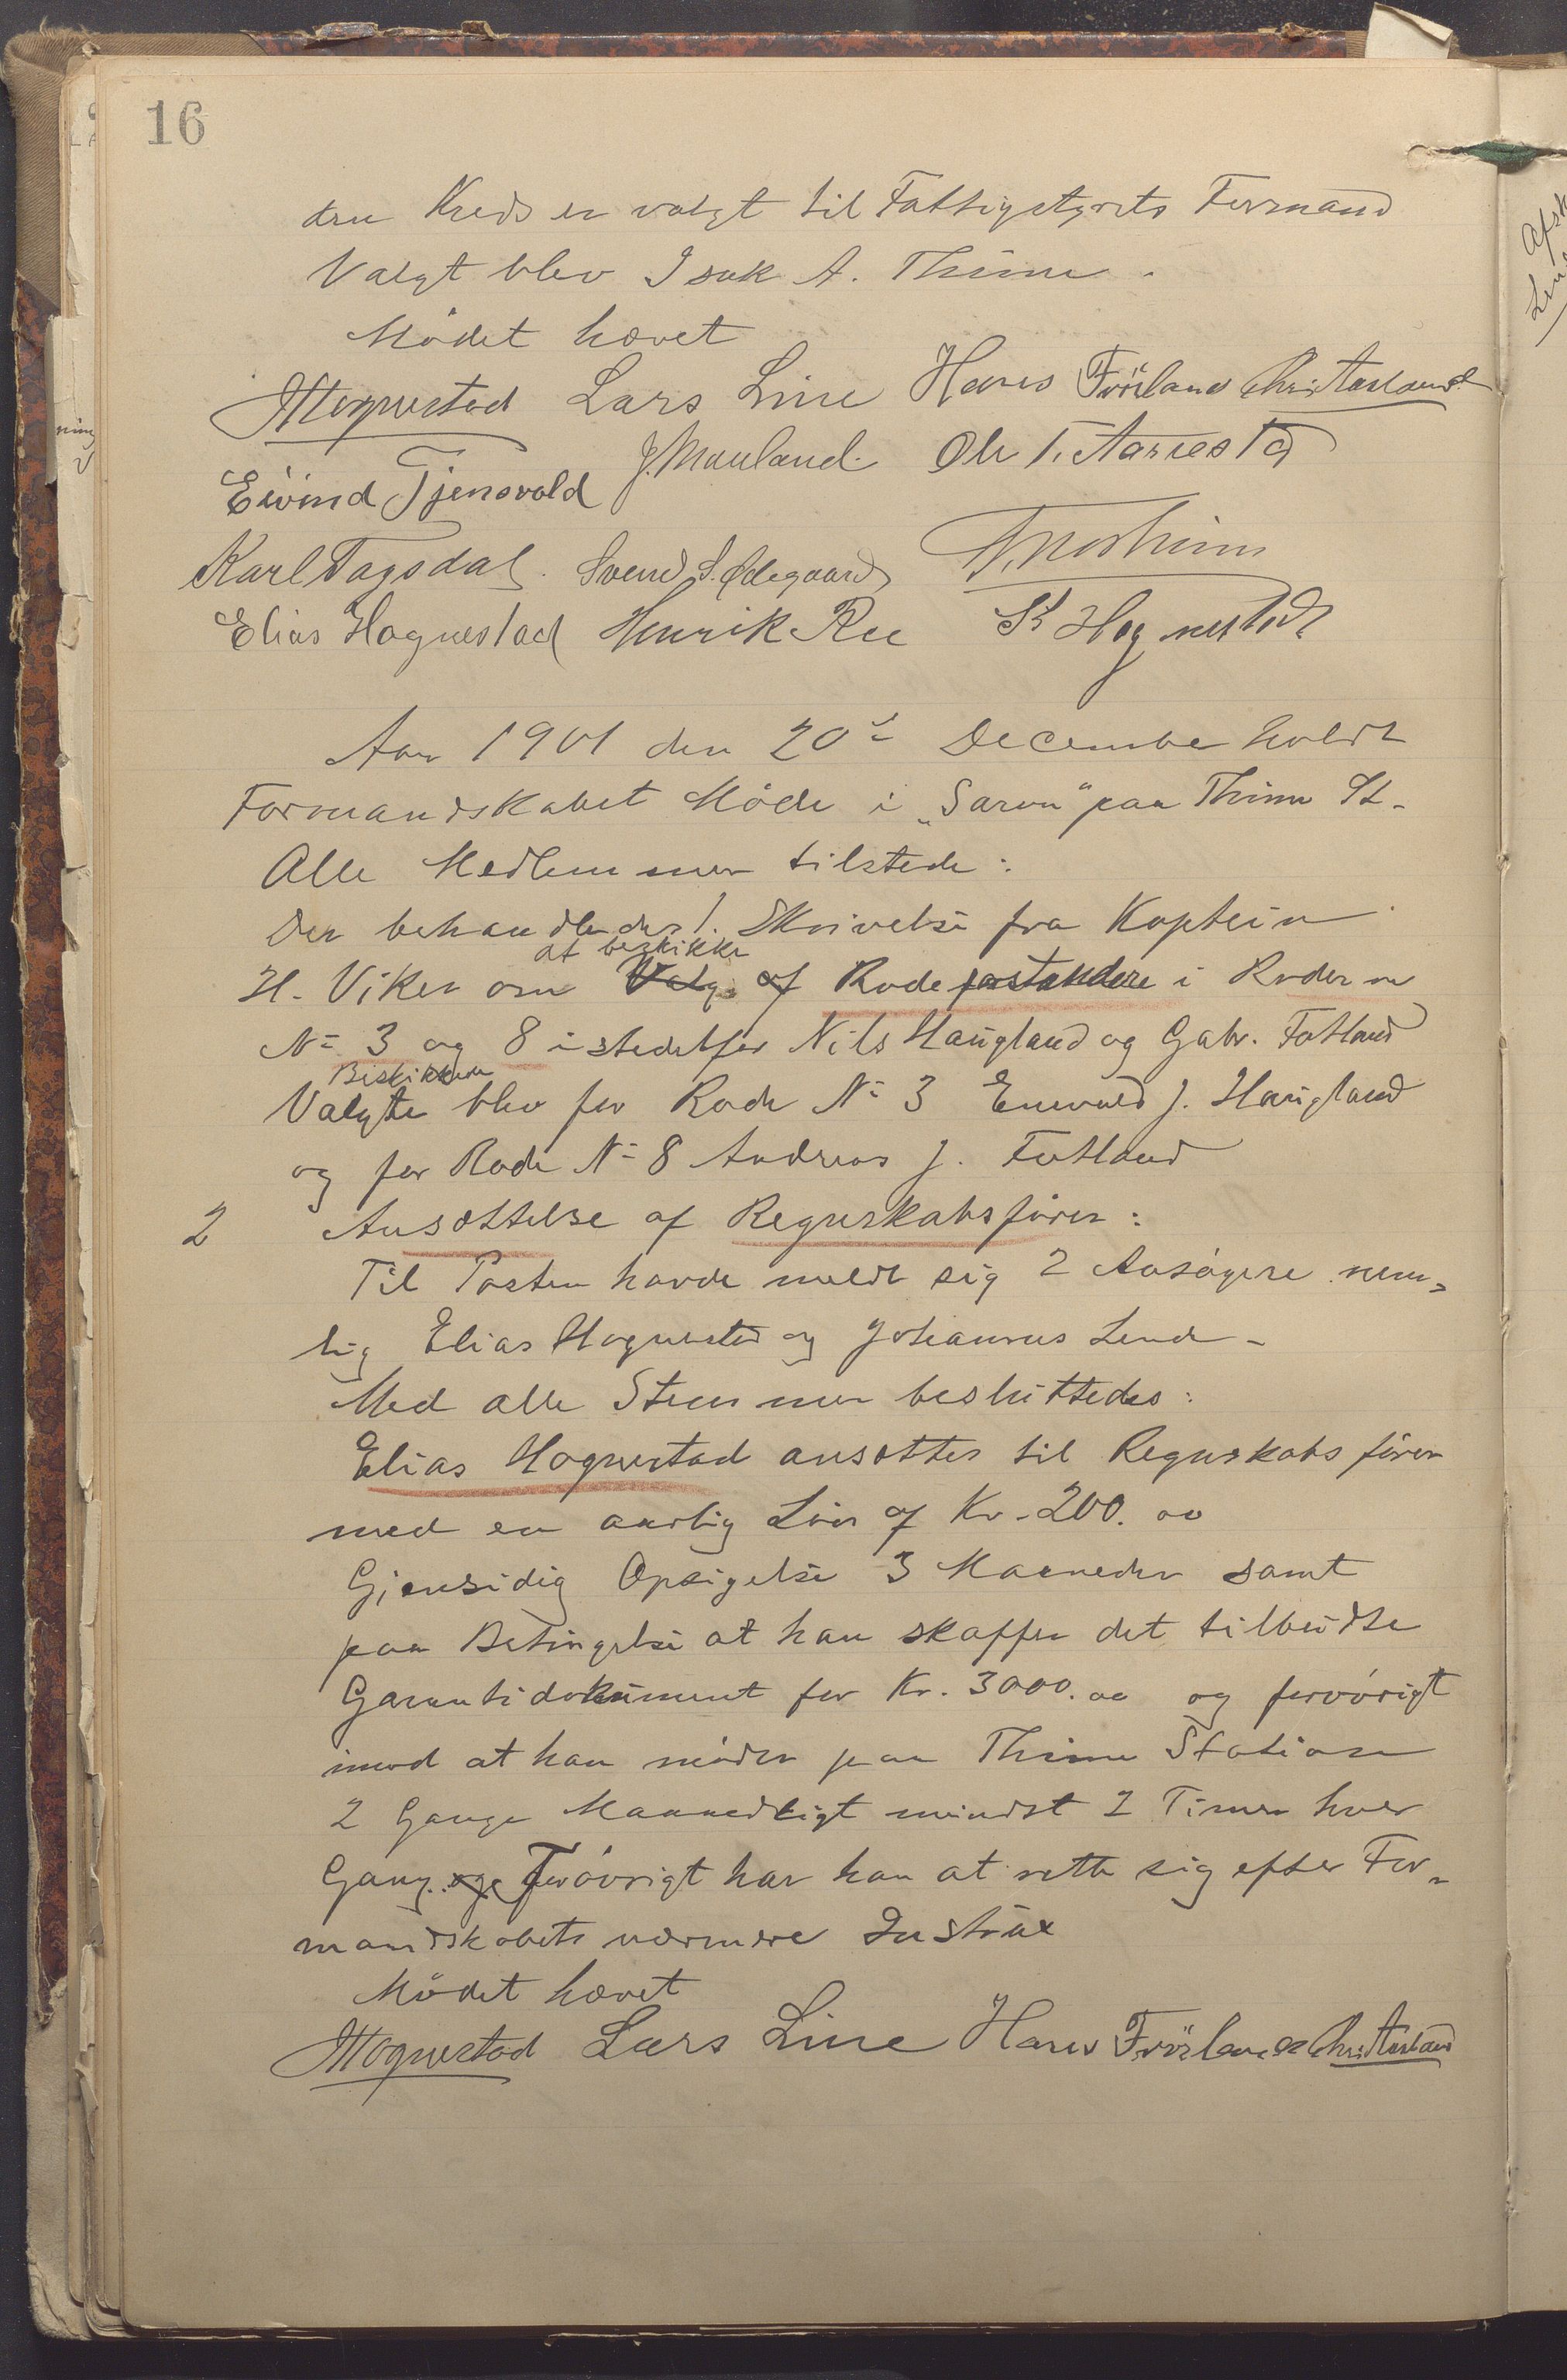 16
den Kreds er valgt til Fattigstyrets Formand
Valgt blev Isak A. Thime.
Mødet hævet
Hognestad Lars Line Hans Frøiland Chr. Aasland
Eivind Tjensvold J. Mauland. Ole T. Aarrestad
Karl Tagsdal. Svend S. Ødegaard
Elias Hognestad Henrik Ree Hognestad
Aar 1901 den 20de December holdt
Formandskabet Møde i „Saron" paa Thime St.
Alle Medlemmer tilstede:
Der behandledes 1. Skrivelse fra Kaptein
at beskikke
H. Viker om Valg af Rodeforstandere i Roderne
No 3 og 8 istedetfor Nils Haugland og Gabr. Fotland
Beskikkede
Valgte blev for Rode No 3 Enevald J. Haugland
og for Rode No 8 Andreas J. Fotland
2 Ansættelse af Regnskabsfører:
Til Posten havde meldt sig 2 Ansøgere nem-
lig Elias Hognestad og Johannes Lende -
Med alle Stemmer besluttedes:
Elias Hognestad ansættes til Regnskabsfører
med en aarlig Løn af Kr. 200.00
Gjensidig Opsigelse 3 Maaneder samt
paa Betingelse at han skaffer det tilbudte
Garantidokument for Kr. 3000.00 og forøvrigt
imod at han møder paa Thime Station
2 Gange Maanedligt mindst 2 Timer hver
Gang. og Forøvrigt har han at rette sig efter For-
mandskabets nærmere Instrux
Mødet hævet
Hognestad Lars Line Hans Frøiland Chr. Aasland